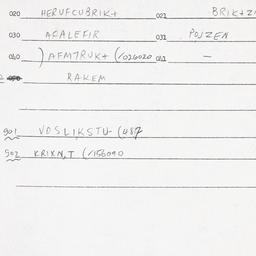 020 HERUFCUBRIK+ 021 BRIK+Z
030 AGALEFIR 031 POJZEN
040 ) AFMTRUK+ (/026020 041 —
RAKEM
901 VOSLIKSTU (487
902 KRIXN,T (/156090